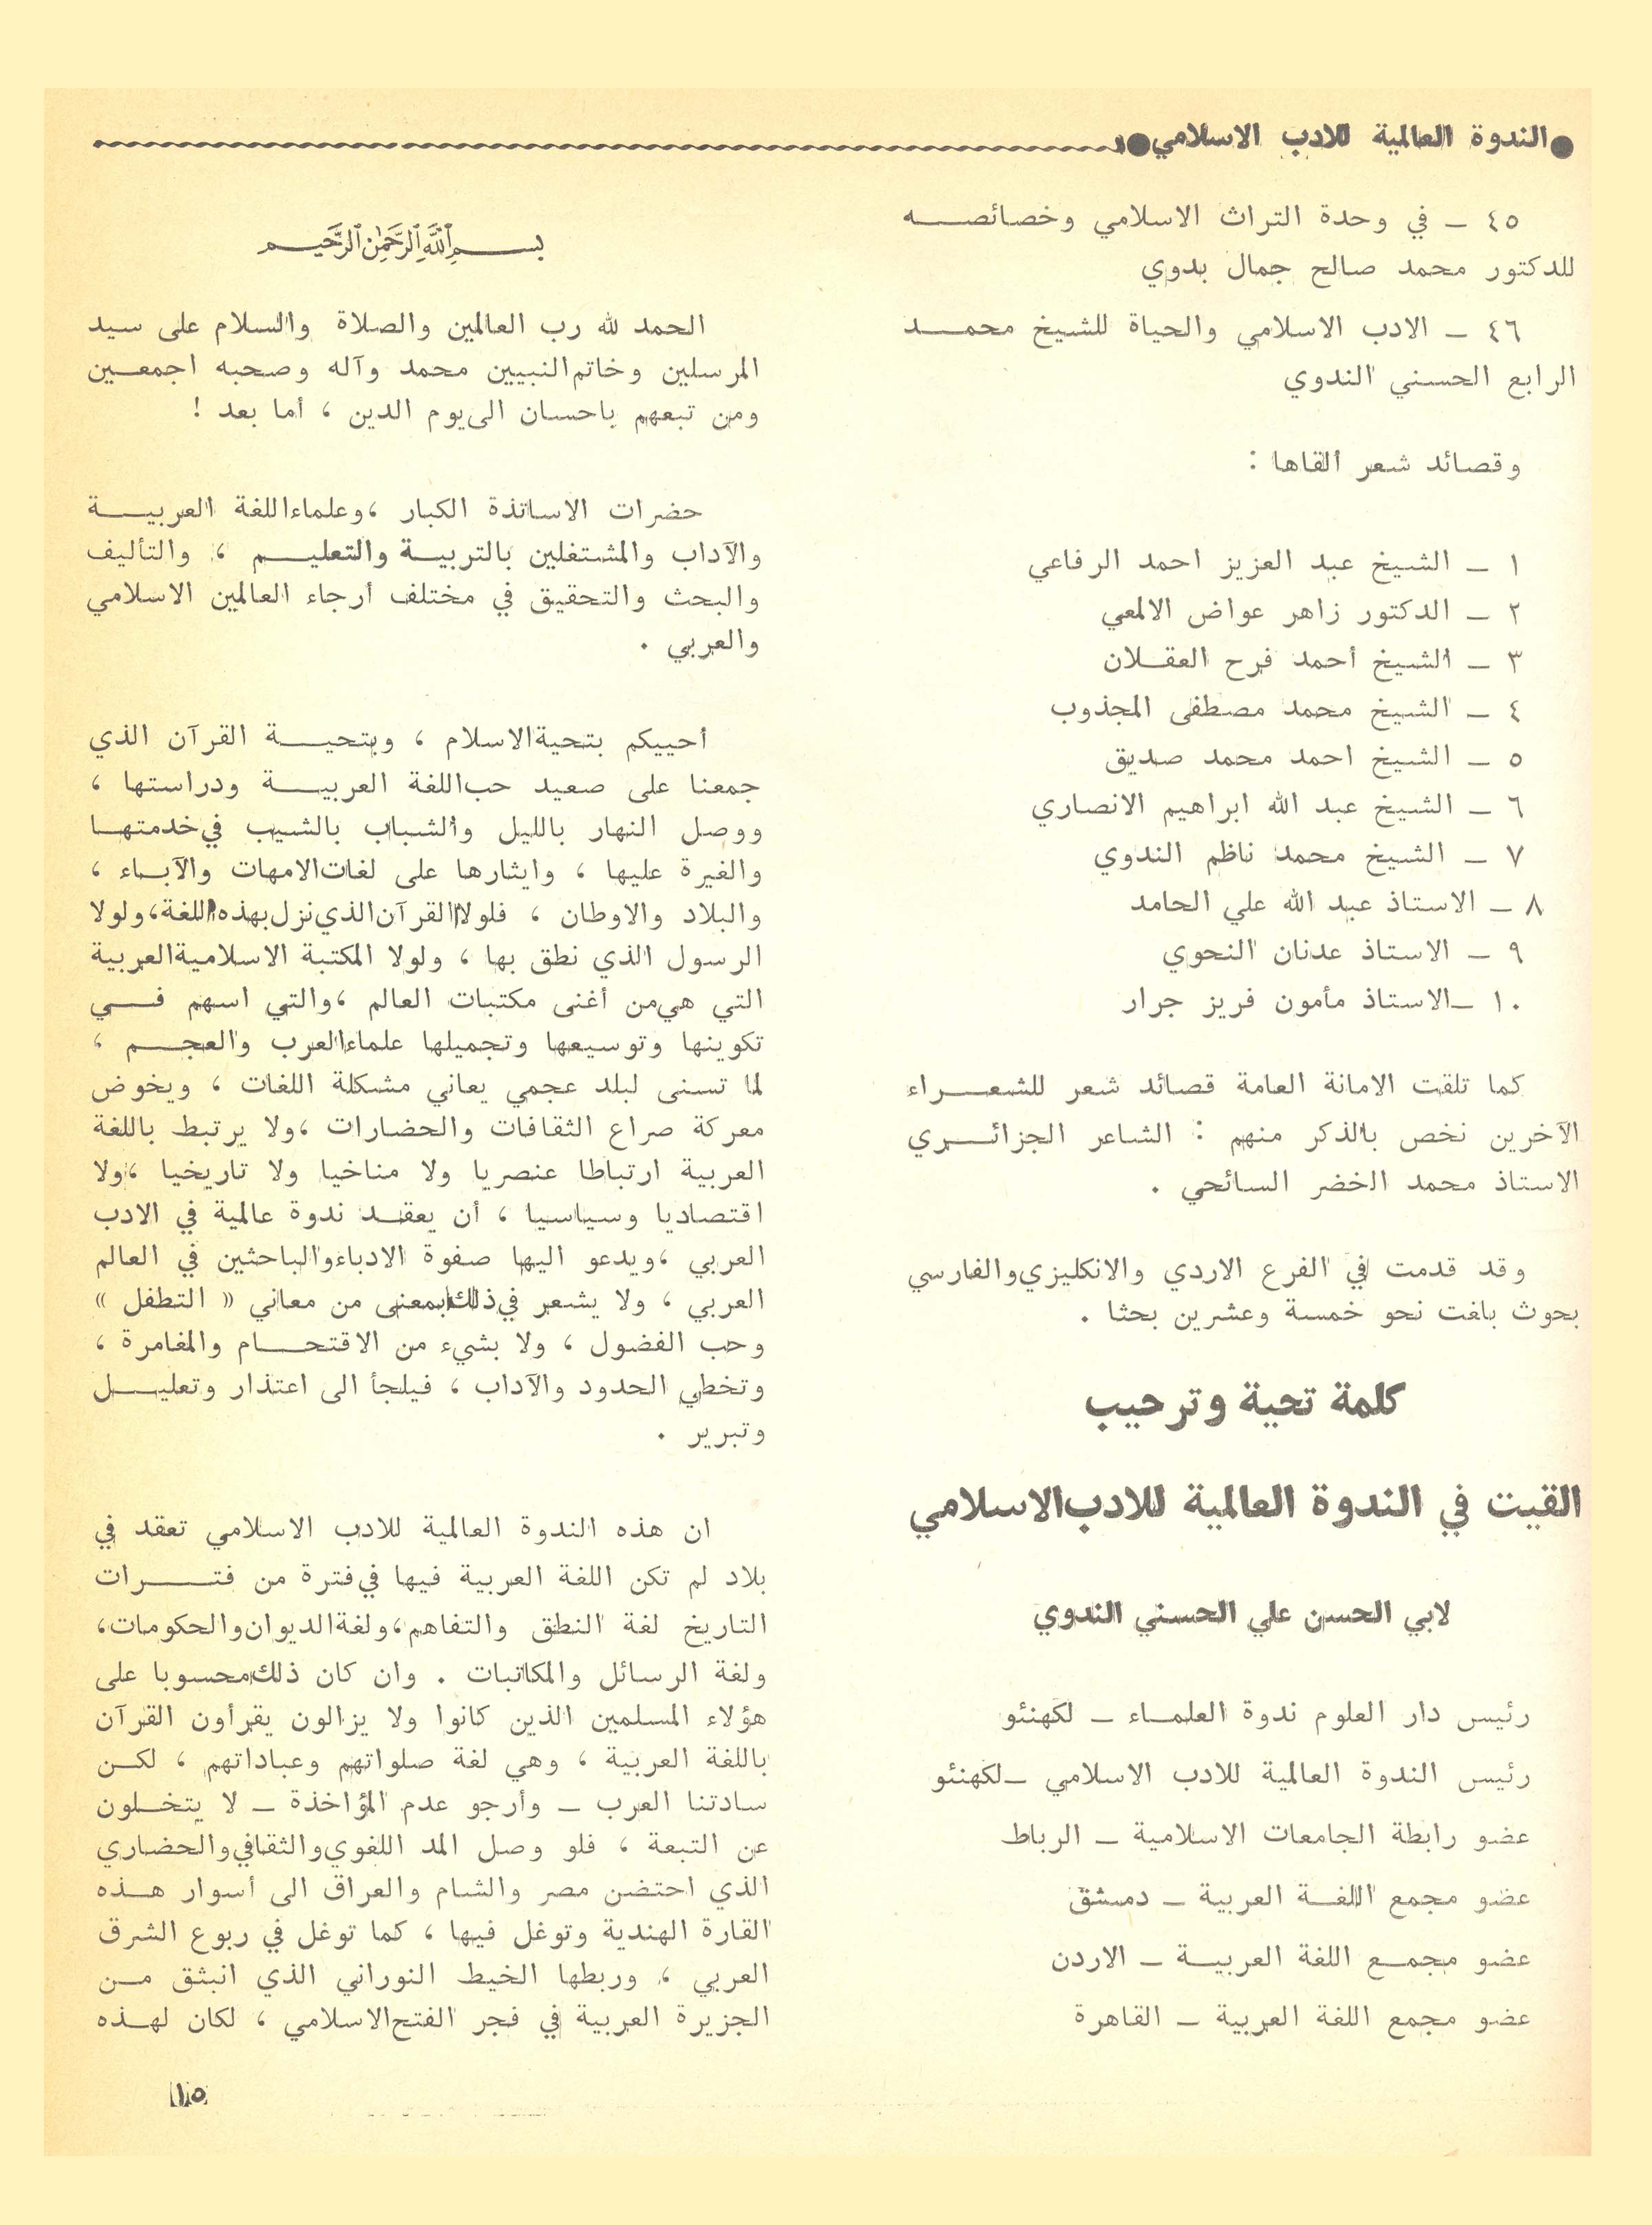 ● الندوة العالمية للادب الاسلامي ●
٤٥ ــ في وحدة التراث الاسلامي وخصائصه
للدكتور محمد صالح جمال بدوي
٤٦ ــ الادب الاسلامي والحياة للشيخ محمد
الرابع الحسني الندوي
وقصائد شعر القاها :
١ ــ الشيخ عبد العزيز احمد الرفاعي
٢ ــ الدكتور زاهر عواض الالمعي
٣ ــ الشيخ أحمد فرح العقلان
٤ ــ الشيخ محمد مصطفى المجذوب
٥ ــ الشيخ احمد محمد صديق
٦ ــ الشيخ عبد الله ابراهيم الانصاري
٧ ــ الشيخ محمد ناظم الندوي
٨ ــ الاستاذ عبد الله علي الحامد
٩ ــ الاستاذ عدنان النحوي
١٠ ــ الاستاذ مأمون فريز جرار
كما تلقت الامانة العامة قصائد شعر للشعراء
الآخرين نخص بالذكر منهم : الشاعر الجزائري
الاستاذ محمد الخضر السائحي .
وقد قدمت في الفرع الاردي والانكليزي والفارسي
بحوث بلغت نحو خمسة وعشرين بحثا .
كلمة تحية وترحيب
القيت في الندوة العالمية للادب الاسلامي
لابي الحسن علي الحسني الندوي
رئيس دار العلوم ندوة العلماء ــ لكهنئو
رئيس الندوة العالمية للادب الاسلامي ــ لكهنئو
عضو رابطة الجامعات الاسلامية ــ الرباط
عضو مجمع اللغة العربية ــ دمشق
عضو مجمع اللغة العربية ــ الاردن
عضو مجمع اللغة العربية ــ القاهرة
بسم الله الرحمن الرحيم
الحمد لله رب العالمين والصلاة والسلام على سيد
المرسلين وخاتم النبيين محمد وآله وصحبه اجمعين
ومن تبعهم باحسان الى يوم الدين ، أما بعد !
حضرات الاساتذة الكبار ، وعلماء اللغة العربية
والآداب والمشتغلين بالتربية والتعليم ، والتأليف
والبحث والتحقيق في مختلف أرجاء العالمين الاسلامي
والعربي .
أحييكم بتحية الاسلام ، وبتحية القرآن الذي
جمعنا على صعيد حب اللغة العربية ودراستها ،
ووصل النهار بالليل والشباب بالشيب في خدمتها
والغيرة عليها ، وايثارها على لغات الامهات والآباء ،
والبلاد والاوطان ، فلولا القرآن الذي نزل بهذه اللغة ، ولولا
الرسول الذي نطق بها ، ولولا المكتبة الاسلامية العربية
التي هي من أغنى مكتبات العالم ، والتي اسهم في
تكوينها وتوسيعها وتجميلها علماء العرب والعجم ،
لما تسنى لبلد عجمي يعاني مشكلة اللغات ، ويخوض
معركة صراع الثقافات والحضارات ، ولا يرتبط باللغة
العربية ارتباطا عنصريا ولا مناخيا ولا تاريخيا ، ولا
اقتصاديا وسياسيا ، أن يعقد ندوة عالمية في الادب
العربي ، ويدعو اليها صفوة الادباء والباحثين في العالم
العربي ، ولا يشعر في ذلك بمعنى من معاني « التطفل »
وحب الفضول ، ولا بشيء من الاقتحام والمغامرة ،
وتخطي الحدود والآداب ، فيلجأ الى اعتذار وتعليل
وتبرير .
ان هذه الندوة العالمية للادب الاسلامي تعقد في
بلاد لم تكن اللغة العربية فيها في فترة من فترات
التاريخ لغة النطق والتفاهم ، ولغة الديوان والحكومات ،
ولغة الرسائل والمكاتبات . وان كان ذلك محسوبا على
هؤلاء المسلمين الذين كانوا ولا يزالون يقرأون القرآن
باللغة العربية ، وهي لغة صلواتهم وعباداتهم ، لكن
سادتنا العرب ــ وأرجو عدم المؤاخذة ــ لا يتخلون
عن التبعة ، فلو وصل المد اللغوي والثقافي والحضاري
الذي احتضن مصر والشام والعراق الى أسوار هذه
القارة الهندية وتوغل فيها ، كما توغل في ربوع الشرق
العربي ، وربطها الخيط النوراني الذي انبثق من
الجزيرة العربية في فجر الفتح الاسلامي ، لكان لهذه
١٥